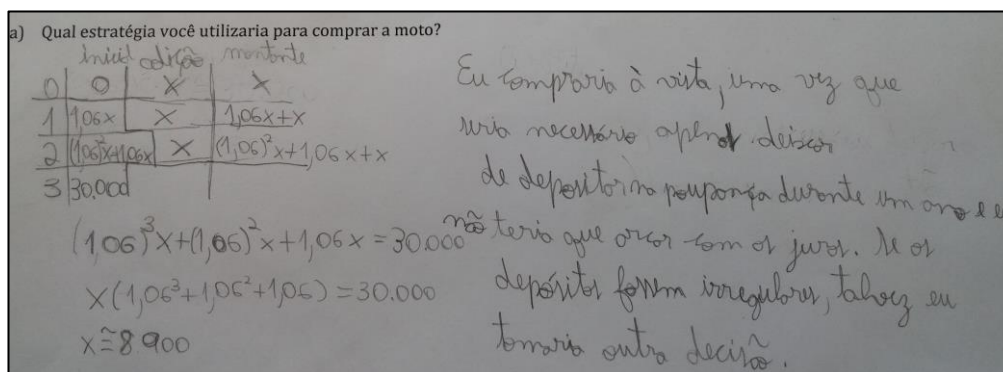 a) Qual estratégia você utilizaria para comprar a moto?
inicial adição montante
0 0 X X
1 1,06x X 1,06x+x
2 (1,06)²x+1,06x X (1,06)²x+1,06x+x
3 30.000
(1,06)³x+(1,06)²x+1,06x=30.000
x(1,06³+1,06²+1,06)=30.000
x≅8 900
Eu compraria à vista, uma vez que
seria necessário apenas deixar
de depositar na poupança durante um ano e
não teria que arcar com os juros. Se os
depósitos fossem irregulares, talvez eu
tomaria outra decisão.